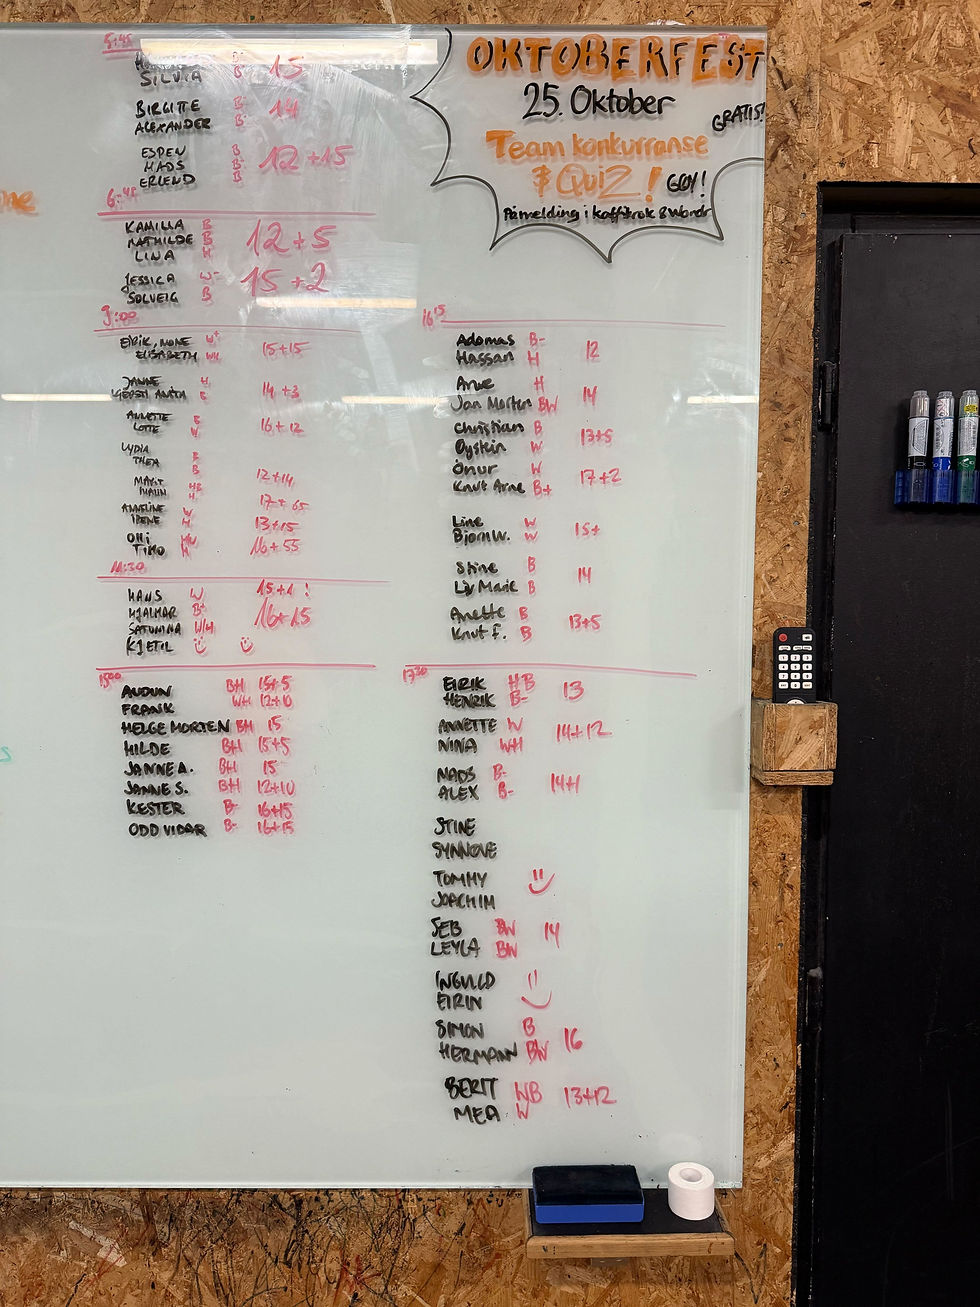 OKTOBERFEST
25. Oktober
GRATIS!
Team konkurranse
& QUIZ! GOY!
Påmelding i kaffekrok & Wordr
5:45
SILVIA B 15
BIRGITTE B
14
ALEXANDER B
ESPEN B
MADS B 12+15
ERLEND B
6:45
KAMILLA B
MATHILDE B 12+5
LINA H
JESSICA W-
15+2
SOLVEIG B
9:00
EIRIK, NONE W+
15+15
ELISABETH WH
JANNE H
14+3
KJERSTI ANITA B
ANNETTE B
16+12
LOTTE W
LYDIA B
THEA B
MARIT HB
12+14
MALIN H
ANNELINE W 17+65
IRENE H 13+15
OLLI
TIMO M 16+55
11:30
HANS W 15+1!
HJALMAR B+ 16+15
SATUMINA WH
KJETIL
15:00
AUDUN BH 15+5
FRANK WH 12+10
HELGE MORTEN BH 15
HILDE BH 15+5
JANNE A. BH 15
JANNE S. BH 12+10
KESTER B- 16+15
ODD VIDAR B- 16+15
16 15
Adomas B-
12
Hassan H
Arne H
14
Jan Morten BW
Christian B
13+5
Øystein W
Onur W
17+2
Knut Arne B+
Line W
15+
Bjørn W. W
Stine B
14
Liv Marie B
Anette B
13+5
Knut F. B
17 30
EIRIK HB
13
HENRIK B-
ANNETTE W
14+12
NINA WH
MADS B-
14+1
ALEX B-
STINE
SYNNØVE
TOMMY
JOACHIM
SEB BW 14
LEYLA BW
INGVILD
EIRIN
SIMON B
16
HERMANN BW
BERIT WB
13+12
MEA W